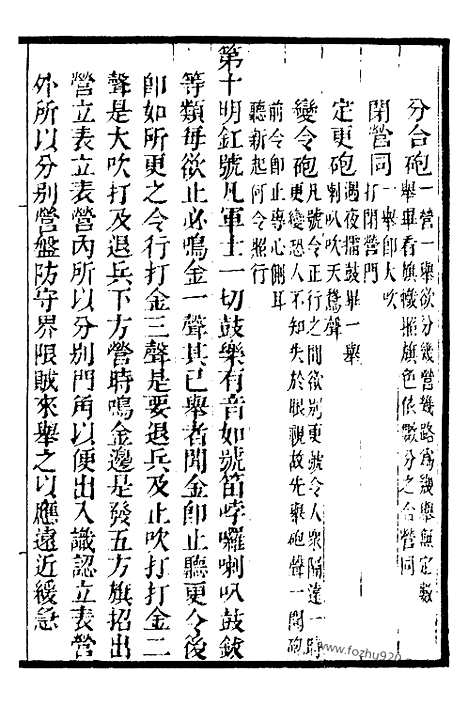 分合砲一營一舉欲分幾營幾路爲幾舉無定數
舉畢看旗幟照旗色依數分之合營同
閉營同一舉即大吹
打閉營門
定更砲遇夜擂鼓畢一舉
喇叭吹天鵞聲
變令砲凡號令正行之間欲别更號令人衆隔遠一時
更變恐人不知失於眼視故先舉砲聲一聞砲
前令即止專心側耳
聽新起何令照行
第十明釭號凡軍士一切鼓樂有音如號笛哱囉喇叭鼓鈸
等類每欲止必鳴金一聲其已舉者聞金即止聽更令後
即如所更之令行打金三聲是要退兵及止吹打打金二
聲是大吹打及退兵下方營時鳴金邊是發五方旗招出
營立表立表營内所以分别門角以便出入識認立表營
外所以分别營盤防守界限賊來舉之以應遠近緩急
www.fozhu920.com